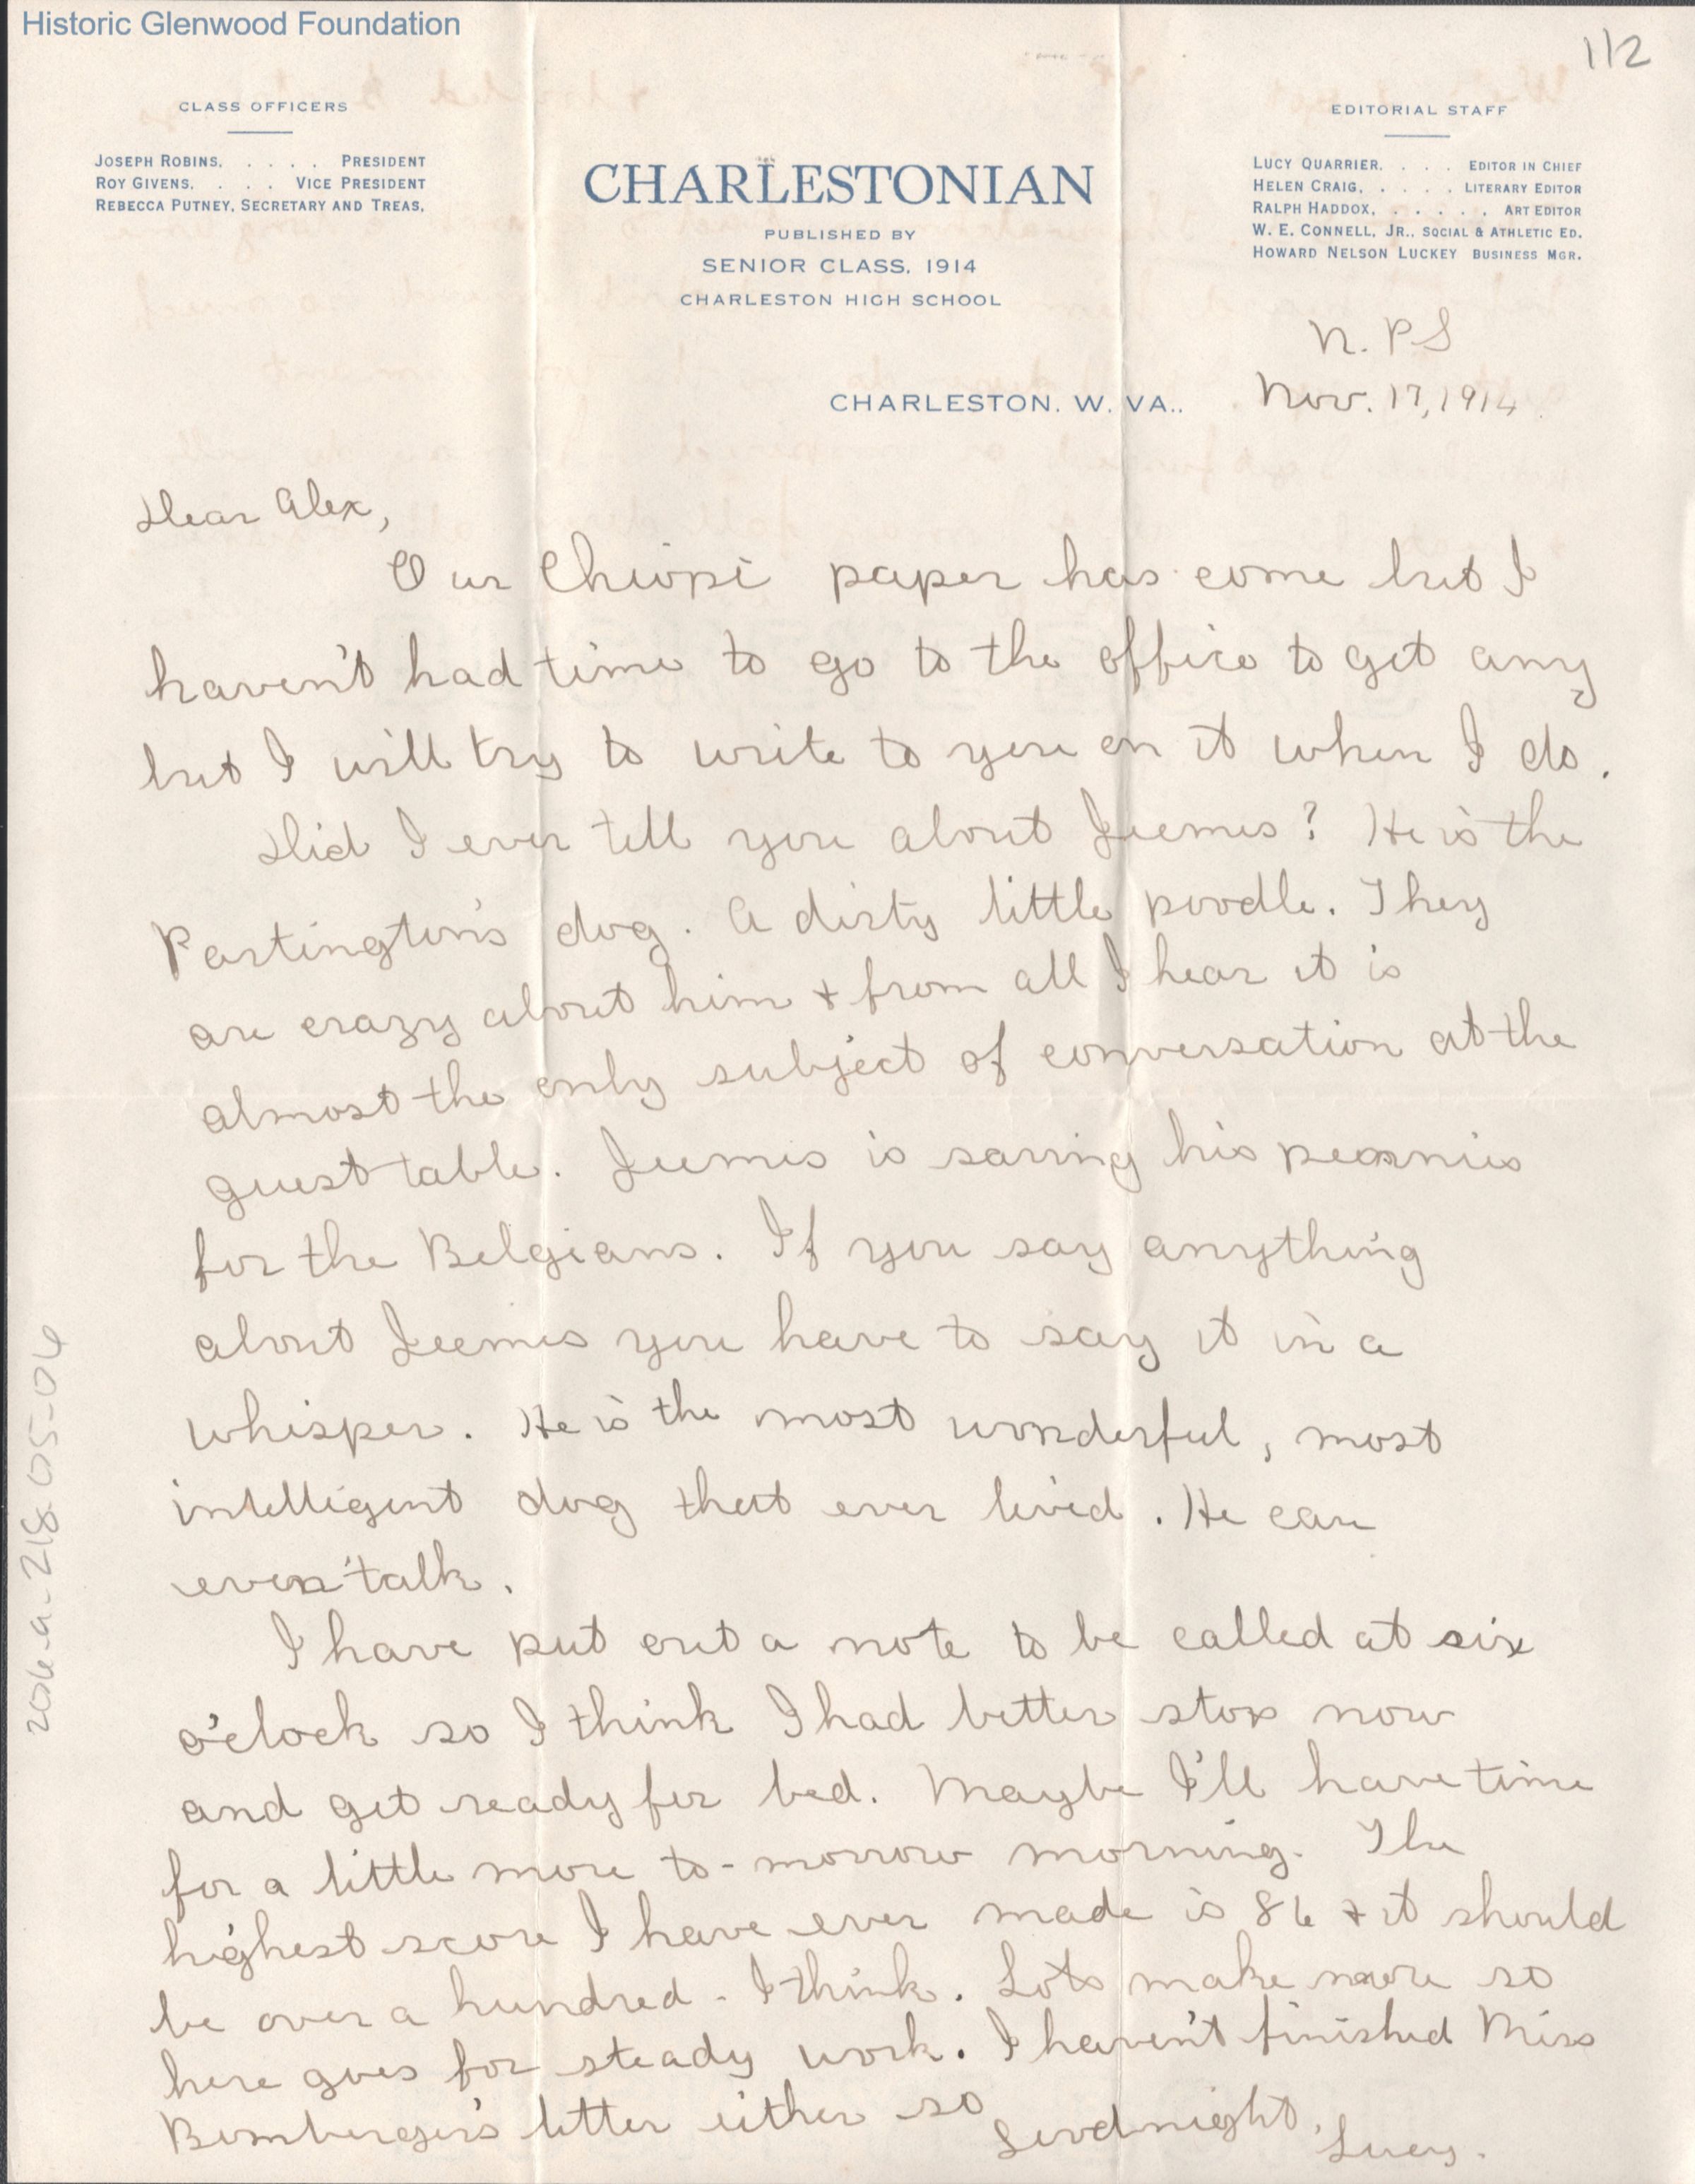 Historic Glenwood Foundation
112
CLASS OFFICERS
JOSEPH ROBINS. . . . . PRESIDENT
ROY GIVENS. . . . VICE PRESIDENT
REBECCA PUTNEY, SECRETARY AND TREAS.
CHARLESTONIAN
PUBLISHED BY
SENIOR CLASS, 1914
CHARLESTON HIGH SCHOOL
EDITORIAL STAFF
LUCY QUARRIER. . . . EDITOR IN CHIEF
HELEN CRAIG, . . . . LITERARY EDITOR
RALPH HADDOX, . . . . . ART EDITOR
W. E. CONNELL, JR., SOCIAL & ATHLETIC ED.
HOWARD NELSON LUCKEY BUSINESS MGR.
N. P S
CHARLESTON. W. VA.. Nov. 17, 1914
Dear Alex,
Our paper has come but I
haven't had time to go to the office to get any
but I will try to write to you on it when I do.
Did I ever tell you about Jeemes? He is the
Partington's dog. A dirty little poodle. They
are crazy about him + from all I hear it is
almost the only subject of conversation at the
guest table. Jeemes is saving his pennies
for the Belgians. If you say anything
about Jeemes you have to say it in a
whisper. He is the most wonderful, most
intelligent dog that ever lived. He can
even talk.
I have put out a note to be called at six
o'clock so I think I had better stop now
and get ready for bed. Maybe I'll have time
for a little more to-morrow morning. The
highest score I have ever made is 86 + it should
be over a hundred - I think. Lots make more so
here goes for steady work. I haven't finished Miss
Bomberger's letter either so Goodnight,
Lucy.
2016-a-218-05-04